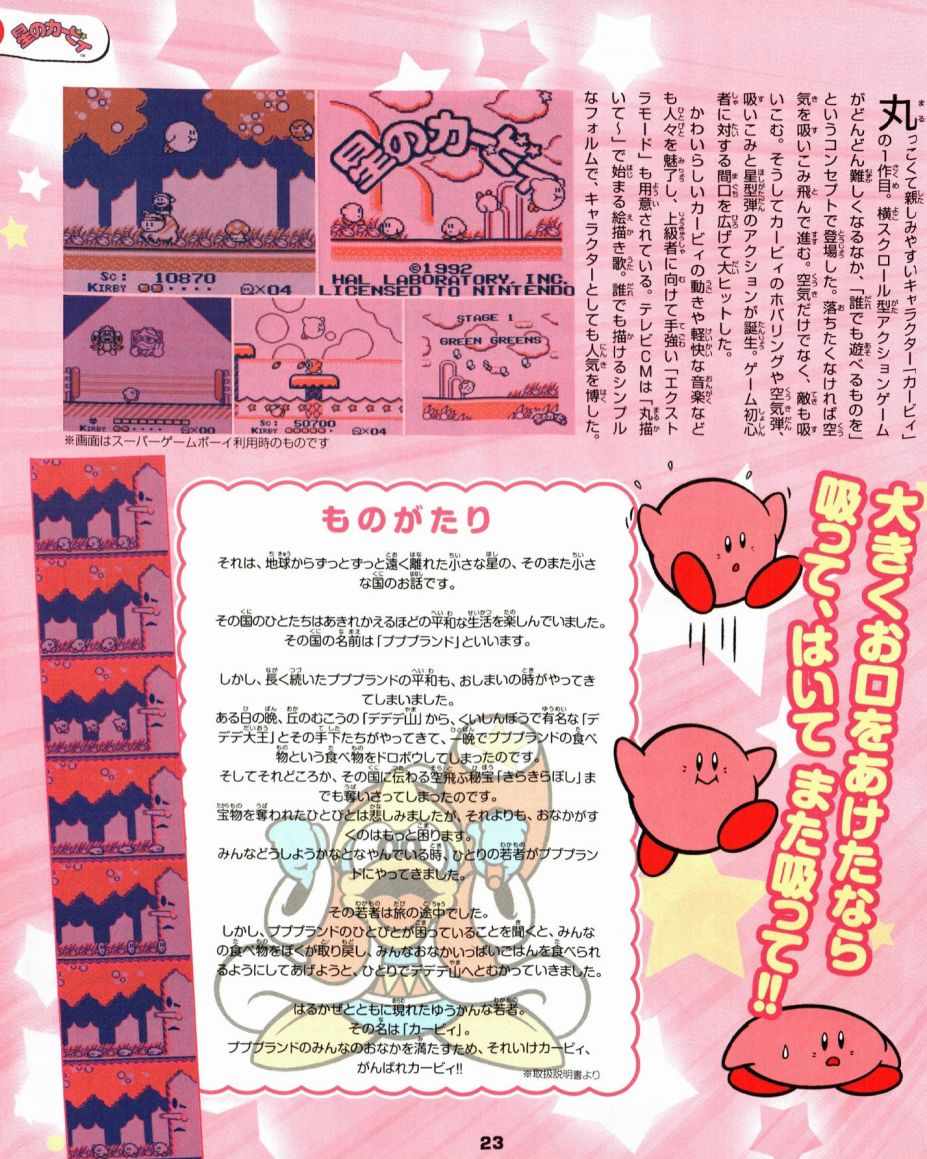 星のカービィ
丸っこくて親しみやすいキャラクター「カービィ」
の1作目。横スクロール型アクションゲーム
がどんどん難しくなるなか、「誰でも遊べるものを」
というコンセプトで登場した。落ちたくなければ空
気を吸いこみ飛んで進む。空気だけでなく、敵も吸
いこむ。そうしてカービィのホバリングや空気弾、
吸いこみと星型弾のアクションが誕生。ゲーム初心
者に対する間口を広げて大ヒットした。
かわいらしいカービィの動きや軽快な音楽など
も人々を魅了し、上級者に向けて手強い「エクスト
ラモード」も用意されている。テレビCMは「丸描
いて〜」で始まる絵描き歌。誰でも描けるシンプル
なフォルムで、キャラクターとしても人気を博した。
Sc: 10870
KIRBY ×04
星のカービィ
©1992
HAL LABORATORY, INC.
LICENSED TO NINTENDO
KIRBY ×00
Sc: 50700
KIRBY ×04
STAGE 1
GREEN GREENS
※画面はスーパーゲームボーイ利用時のものです
大きくお口をあけたなら
吸って、はいて また吸って!!
ものがたり
それは、地球からずっとずっと遠く離れた小さな星の、そのまた小さ
な国のお話です。
その国のひとたちはあきれかえるほどの平和な生活を楽しんでいました。
その国の名前は「プププランド」といいます。
しかし、長く続いたプププランドの平和も、おしまいの時がやってき
てしまいました。
ある日の晩、丘のむこうの「デデデ山」から、くいしんぼうで有名な「デ
デデ大王」とその手下たちがやってきて、一晩でプププランドの食べ
物という食べ物をドロボウしてしまったのです。
そしてそれどころか、その国に伝わる空飛ぶ秘宝「きらきらぼし」ま
でも奪いさってしまったのです。
宝物を奪われたひとびとは悲しみましたが、それよりも、おなかがす
くのはもっと困ります。
みんなどうしようかなとなやんでいる時、ひとりの若者がプププラン
ドにやってきました。
その若者は旅の途中でした。
しかし、プププランドのひとびとが困っていることを聞くと、みんな
の食べ物をぼくが取り戻し、みんなおなかいっぱいごはんを食べられ
るようにしてあげようと、ひとりでデデデ山へとむかっていきました。
はるかぜとともに現れたゆうかんな若者。
その名は「カービィ」。
プププランドのみんなのおなかを満たすため、それいけカービィ、
がんばれカービィ!!
※取扱説明書より
23